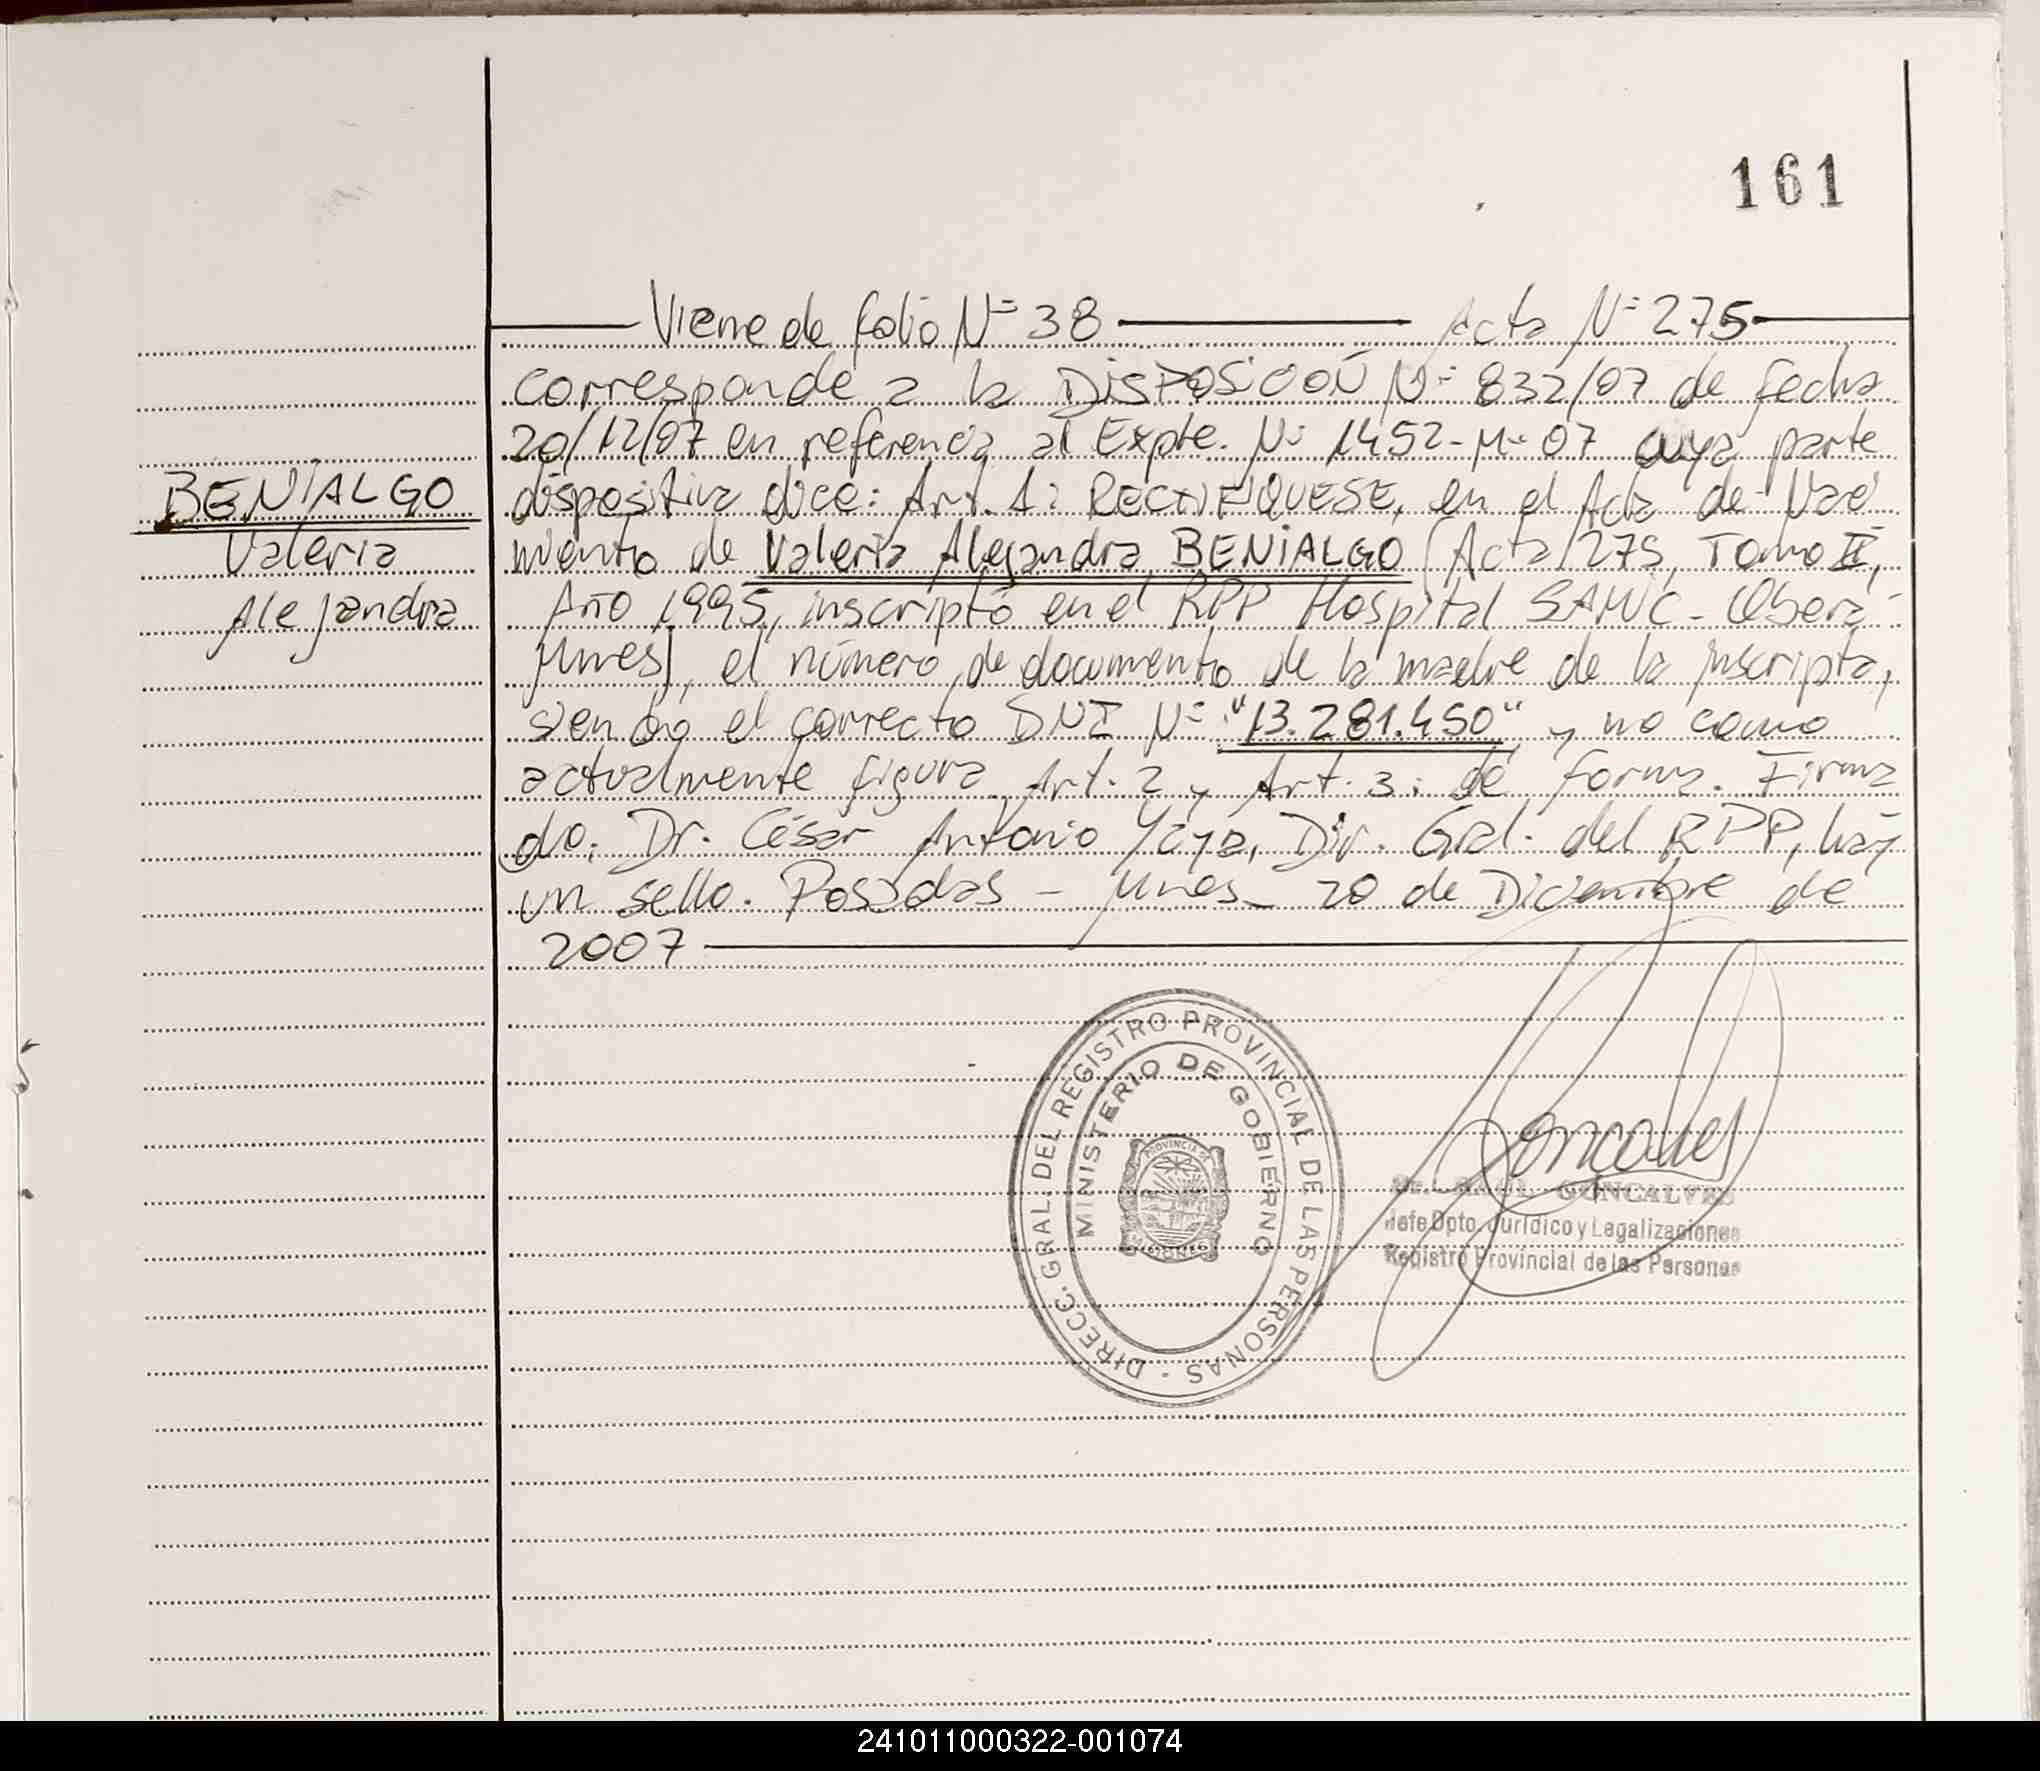 161
Viene de folio Nº 38 Acta Nº 275
BENIALGO
Valeria
Alejandra
corresponde a la DISPOSICIÓN Nº 832/07 de fecha
20/12/07 en referencia al Expte. Nº 1452-M-07 cuya parte
dispositiva dice: Art. 1: RECTIFIQUESE, en el Acta de Naci
miento de Valeria Alejandra BENIALGO (Acta 275, Tomo II,
Año 1995, inscripto en el RPP Hospital SAMIC - Oberá -
Mnes), el número de documento de la madre de la inscripta,
siendo el correcto DNI Nº "13.281.450" y no como
actualmente figura. Art. 2 y Art. 3: de forma. Firma
do: Dr. César Antonio Yaya, Dir. Gral. del RPP, hay
un sello. Posadas - Mnes - 20 de Diciembre de
2007
DIRECC. GRAL. DEL REGISTRO PROVINCIAL DE LAS PERSONAS -
MINISTERIO DE GOBIERNO
PROVINCIA DE
MISIONES
Goncalves
Dr. RAUL GONCALVES
Jefe Dpto. Jurídico y Legalizaciones
Registro Provincial de las Personas
241011000322-001074